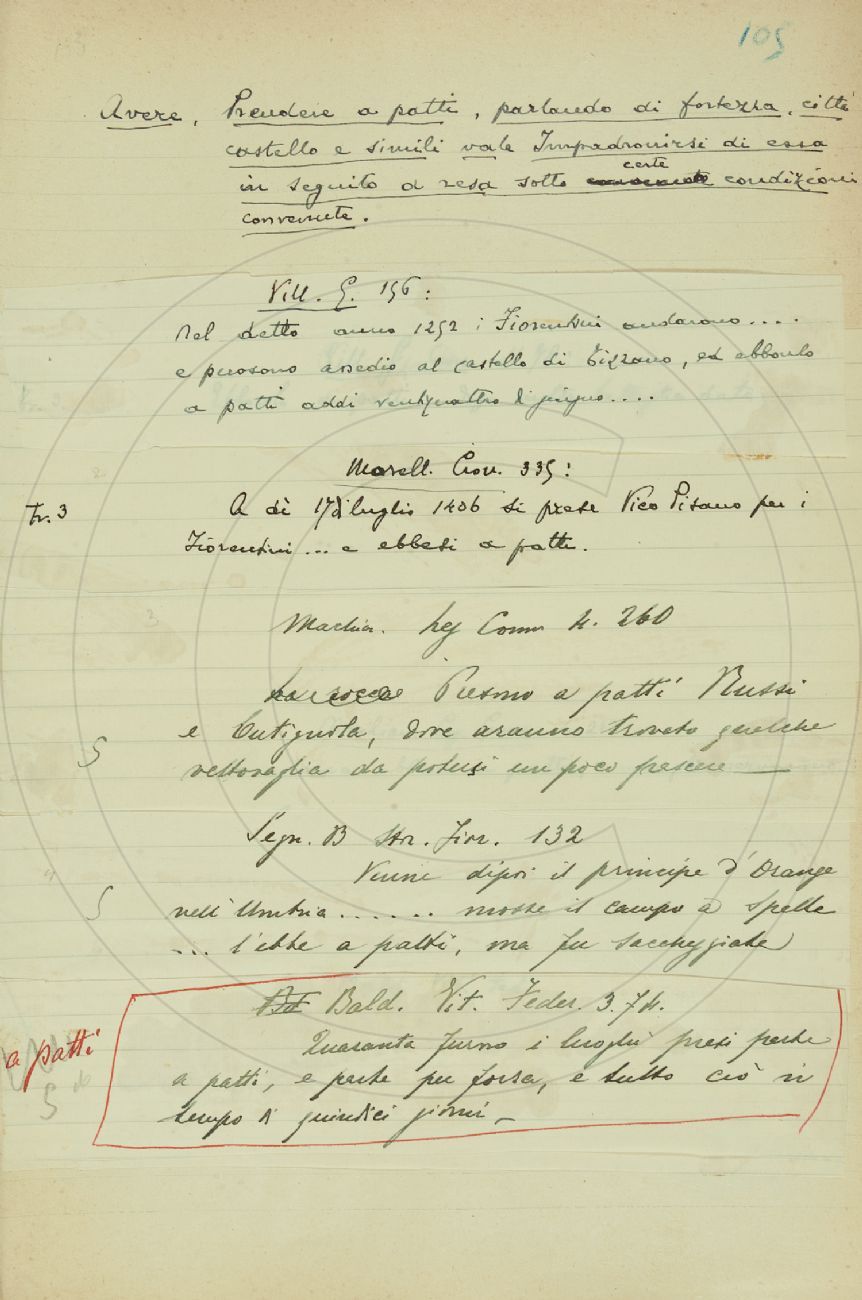 105
Avere, Prendere a patti, parlando di fortezza, città
castello e simili vale Impadronirsi di essa
in seguito a resa sotto certe condizioni
convenute.
Vill. G. 156:
Nel detto anno 1252 i Fiorentini andarono....
e puosono assedio al castello di Tizzano, ed ebbonlo
a patti addì ventiquattro di giugno....
Morell. Cron. 335:
Tr. 3
A dì 17 di luglio 1406 si prese Vico Pisano per i
Fiorentini ... e ebbesi a patti.
Machia. Leg Comm 4. 260
Presono a patti Russi
e Cutignola, dove aranno trovato qualche
5
vettovaglia da potersi un poco
Segn. B Stor. Fior. 132
Venne dipoi il principe d'Orange
5
nell'Umbria ...... mosse il campo a Spelle
... l'ebbe a patti, ma fu saccheggiato
Bald. Vit. Feder. 3. 74.
a patti
Quaranta furno i luoghi presi parte
a patti, e parte per forza, e tutto ciò in
5
tempo di quindici giorni